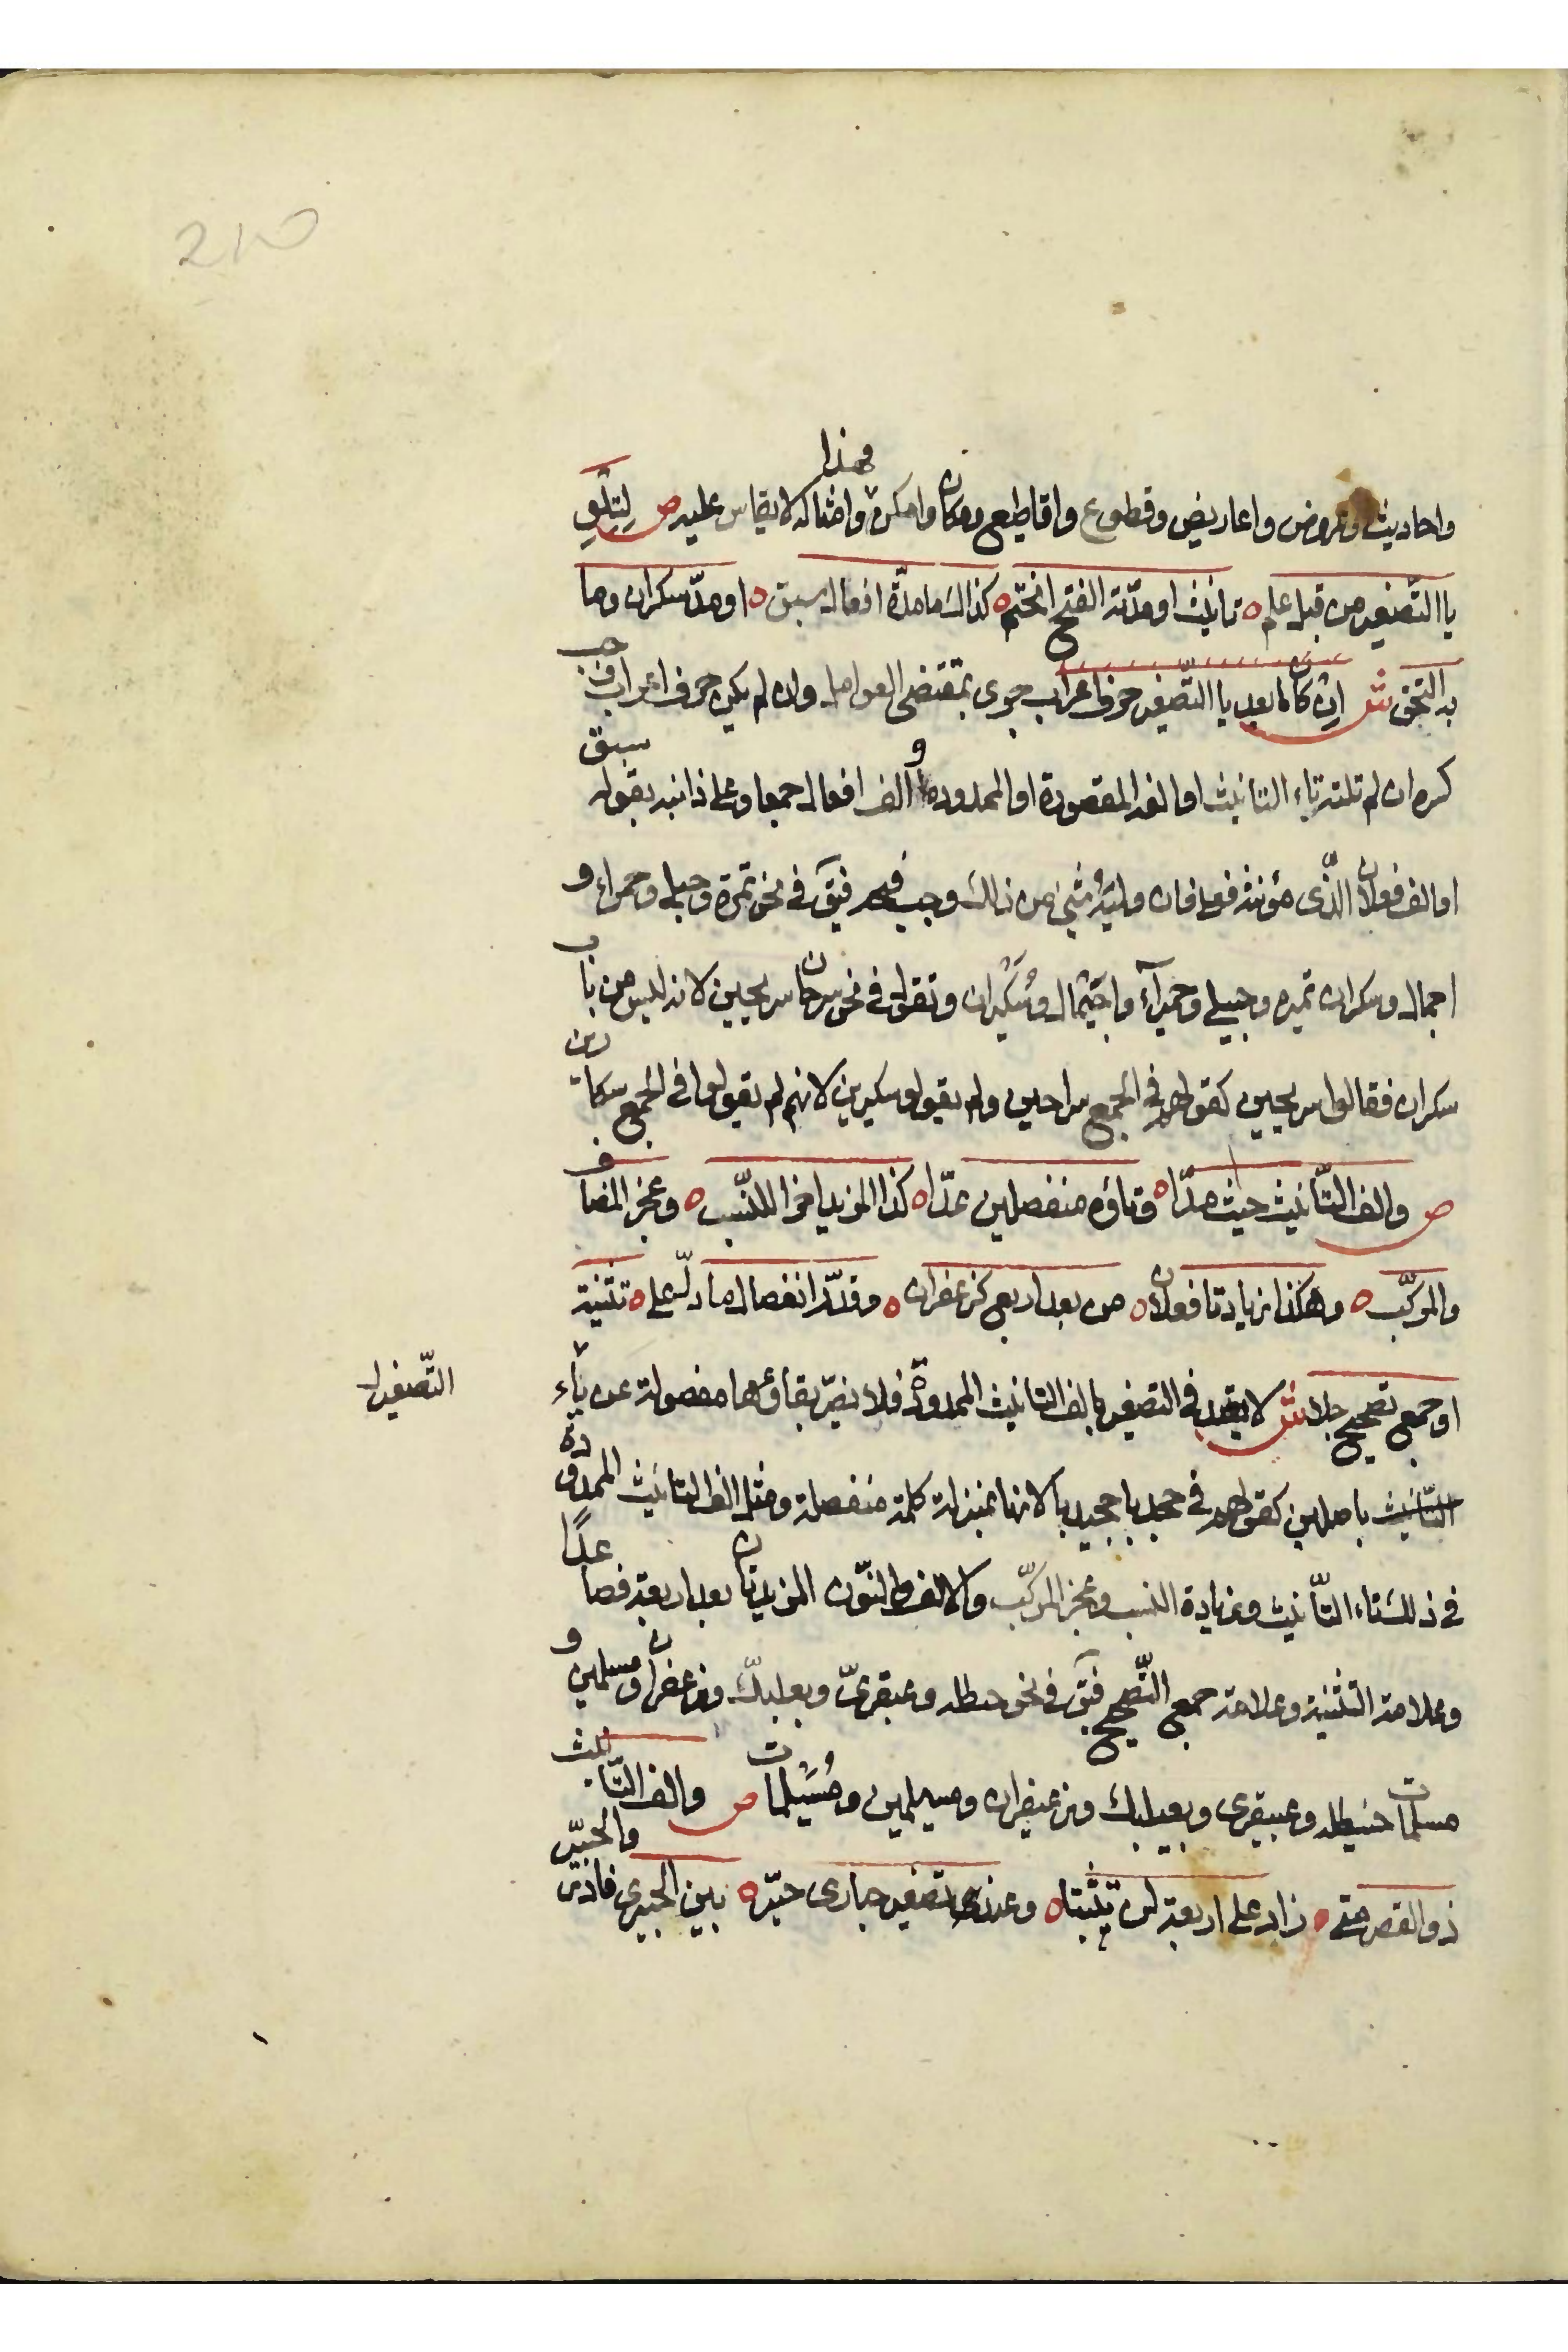 210
واحاديث وعروض واعاريض وقطوع واقاطيع ومكان وامكن فهذا وامثاله لا يقاس عليه ص لِتِلْوِ
يا التّصغير من قبل علم ه تانيث او مدّته الفتح انحتم ه كذاك ما مدّة افعال سبق ه او مدّ سكران وما
به التحق ش ان كان ما بعد يا التّصغير حرف اعراب جرى بمقتضى العوامل وان لم يكن حرف اعراب وجب
كسره ان لم تلته تاء التانيث او الفه المقصورة او الممدودة او الف افعال جمعا وعلى ذا نبه بقوله سبق
او الف فعلان الّذى مؤنثه فعلى فان وليَهُ شئ من ذلك وجب فتحه فتقَ في نحو تمرة وحبلى وحمراء و
اجمال وسكران تميره وحبيلى وحميرآء واجَيْمال وسُكَيْران وتقول في نحو سرحان سريحين لانه ليس من باب
سكران فقالوا سريحين كقولهم في الجمع سراحين ولم يقولوا سكيرين لانهم لم يقولوا في الجمع سكارين
ص والف التّانيث حيث مدّا ه وتاؤه منفصلين عدّا ه كذا المزيد اخرا للنّسب ه وعجز المضاف
والمركّب ه وهكذا زيادتا فعلان ه من بعد اربع كزعفران ه وقدّر انفصال ما دلّ على ه تثنية
او جمع تصحيح جلا ش لا يعتد في التصغير بالف التانيث الممدودة فلا يضرّ بقاؤها مفصولة عن ياء
التّصغير
التّانيث باصلين كقولهم في جحدبا جحيدبا لانها بمنزلة كلمة منفصلة ومثل الف التانيث الممدودة
في ذلك تاء التّأنيث وزيادة النسب وعجز المركّب والالف والنّون المزيدتان بعد اربعة فصاعدًا
وعلامة التثنية وعلامة جمع التّصحيح فتقَ في نحو حنظله وعبقرىّ وبعلبكّ وزعفران ومسلمين و
مسلمات حنيظله وعبيقرى وبعيلبك وزعيفران ومسيلمين ومُسَيْلمات ص والف التّانيث
ذو القصر متى ه زاد على اربعة لن يثبتا ه وعند تصغير حبارى خيّر ه بين الحبيرى فادر والحبيّر